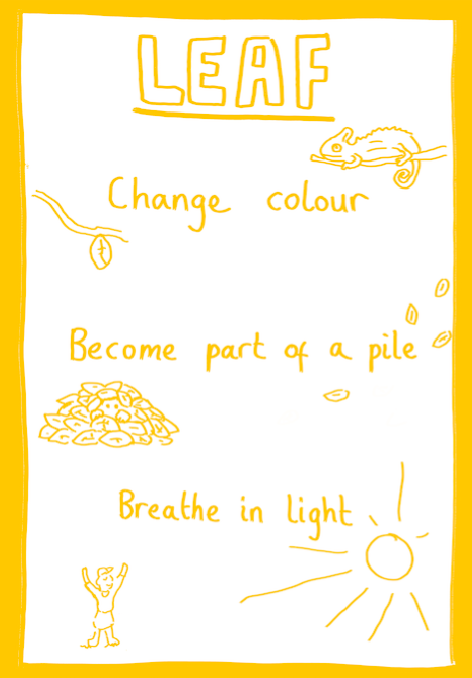 LEAF
Change colour
Become part of a pile
Breathe in light